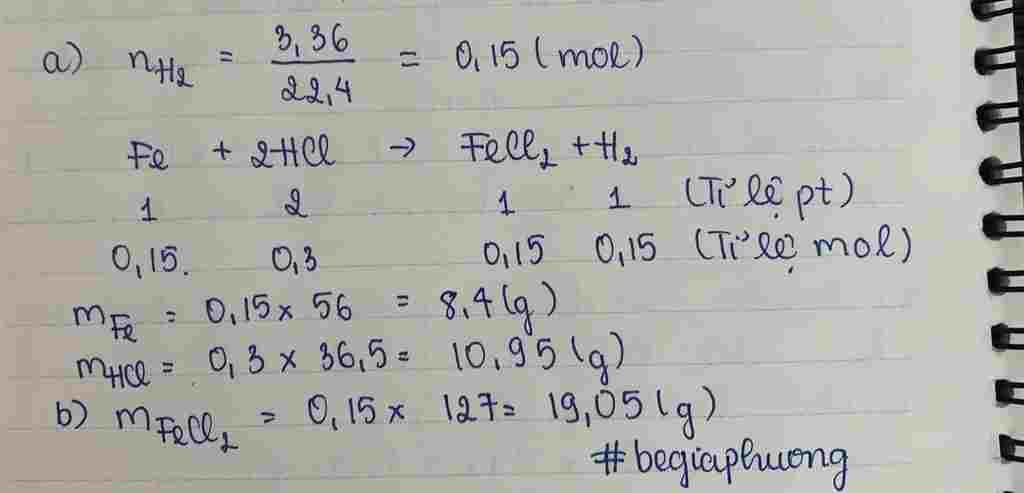 a) nH₂ = 3,36 / 22,4 = 0,15 (mol)
Fe + 2HCl → FeCl₂ + H₂
1 2 1 1 (Tỉ lệ pt)
0,15. 0,3 0,15 0,15 (Tỉ lệ mol)
mFe = 0,15 x 56 = 8,4 (g)
mHCl = 0,3 x 36,5 = 10,95 (g)
b) mFeCl₂ = 0,15 x 127 = 19,05 (g)
#begiaphuong